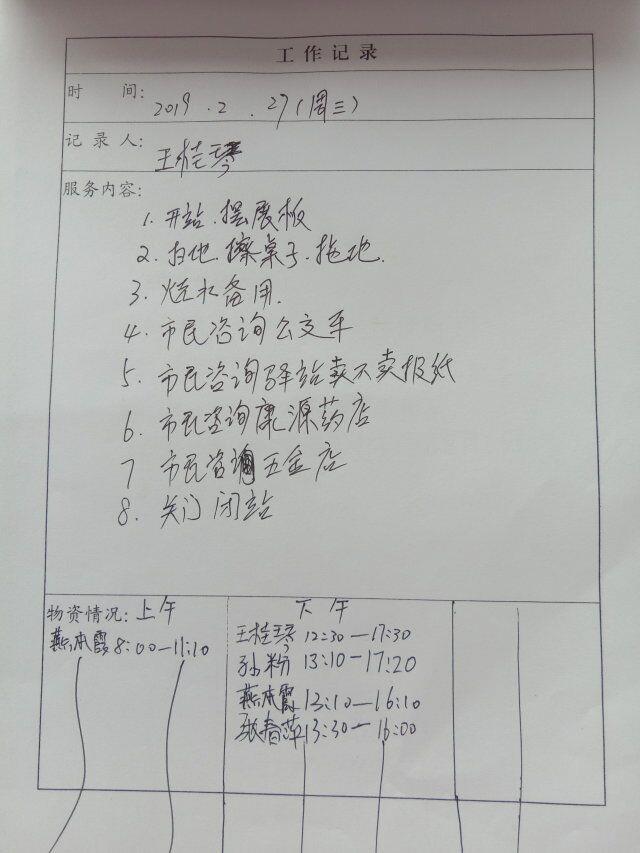 工作记录
时 间: 2019.2.27(周三)
记录人: 王桂琴
服务内容:
1. 开站.摆展板
2. 扫地.擦桌子.拖地.
3. 烧水备用.
4. 市民咨询公交车
5. 市民咨询驿站卖不卖报纸
6. 市民咨询康源药店
7 市民咨询五金店
8. 关门闭站
物资情况: 上午
燕本霞 8:00—11:10
下午
王桂琴 12:30—17:30
孙粉 13:10—17:20
燕本霞 13:10—16:10
张春萍 13:30—16:00